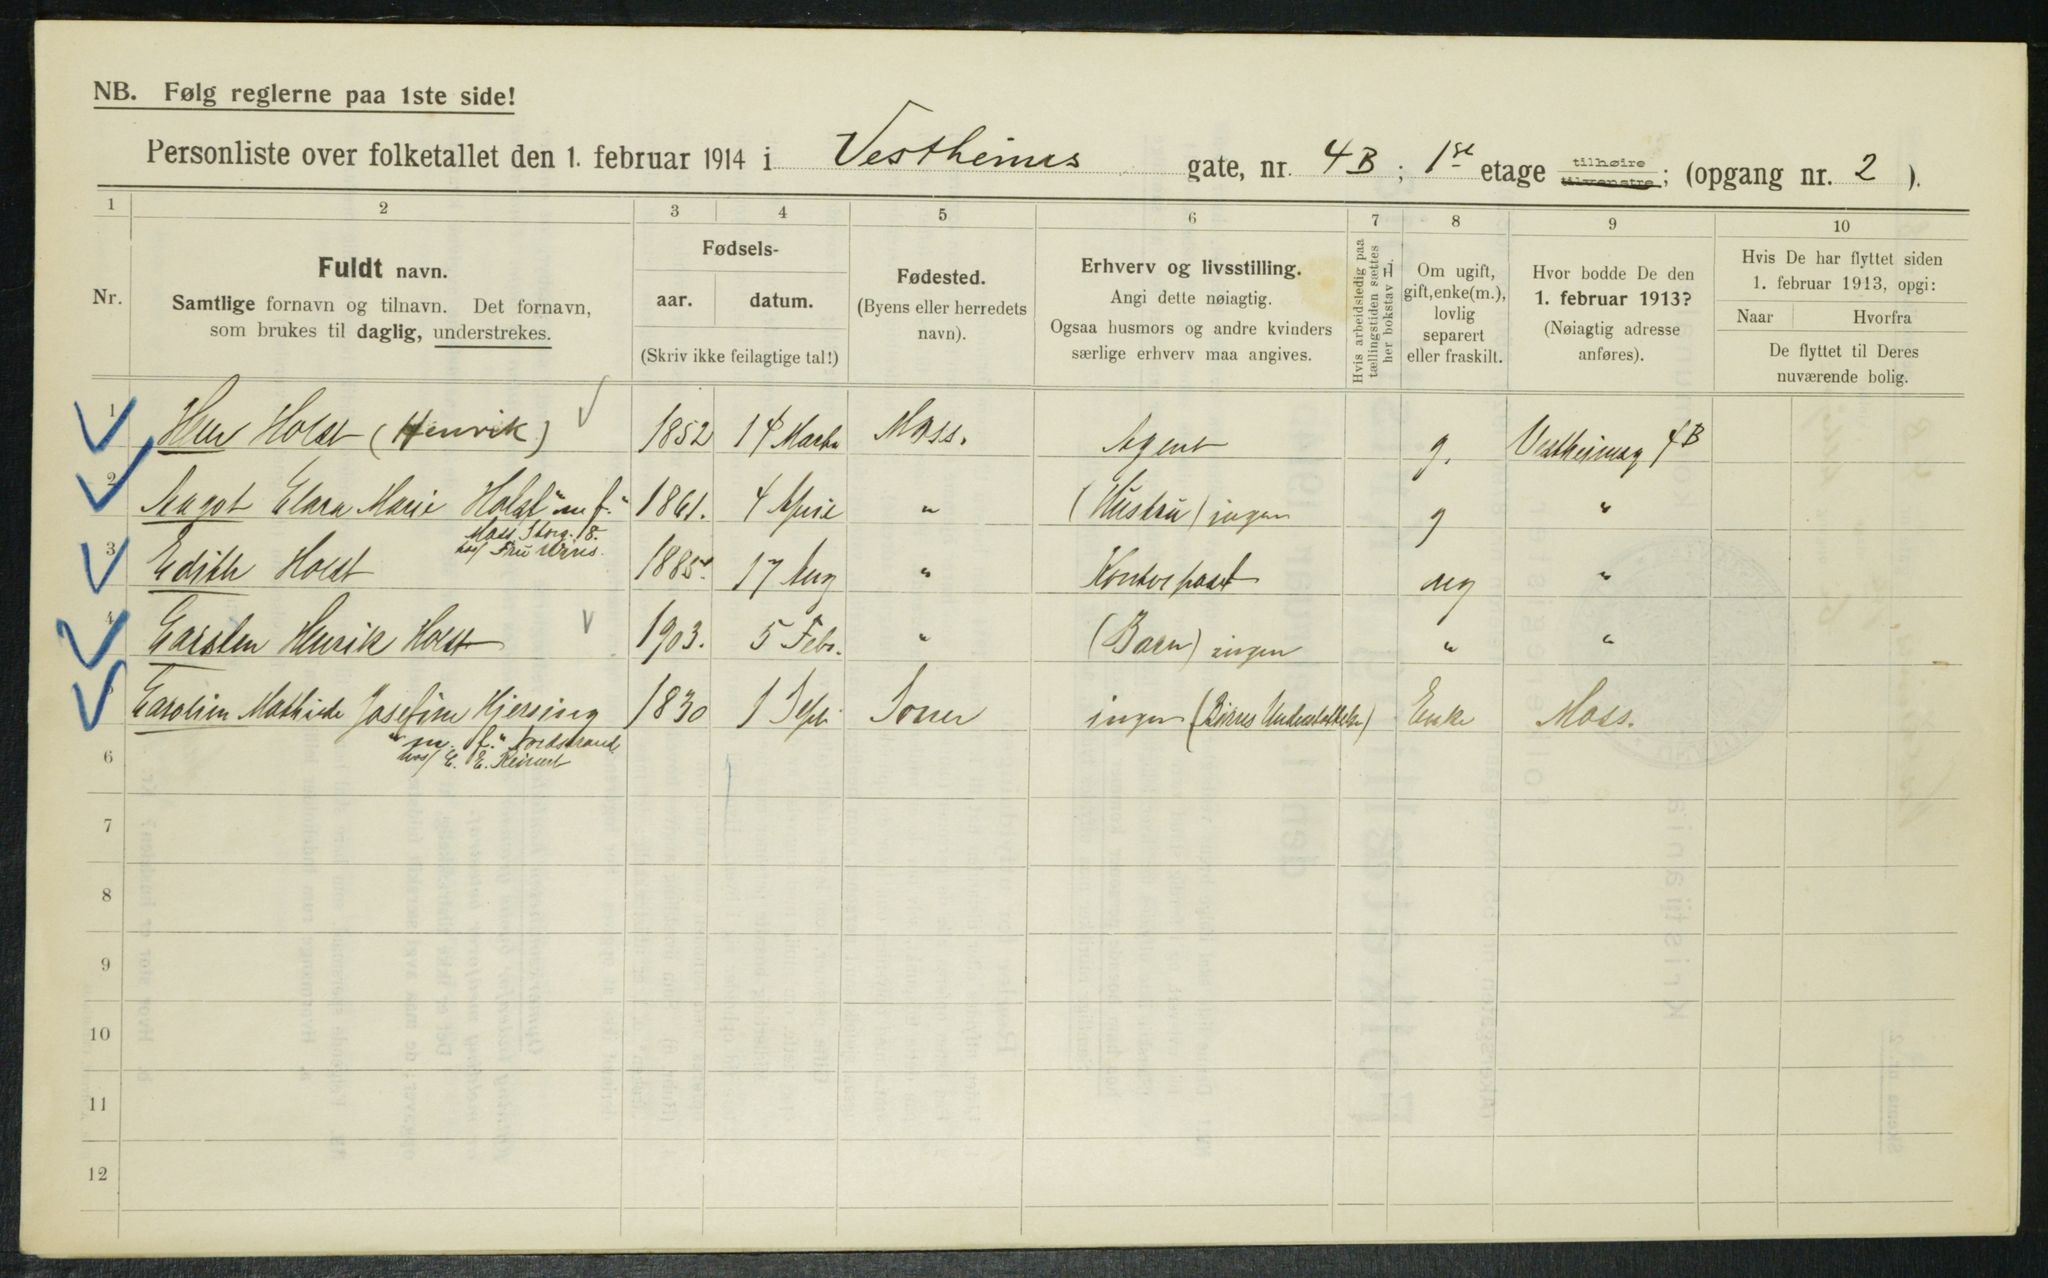 NB. Følg reglerne paa 1ste side!
Personliste over folketallet den 1. februar 1914 i Vestheims gate, nr. 4B; 1ste etage tilhøire tilvenstre; (opgang nr. 2).
1 2 3 4 5 6 7 8 9 10
Nr.
Fuldt navn.
Samtlige fornavn og tilnavn. Det fornavn,
som brukes til daglig, understrekes.
Fødsels-
aar. datum.
(Skriv ikke feilagtige tal!)
Fødested.
(Byens eller herredets
navn).
Erhverv og livsstilling.
Angi dette nøiagtig.
Ogsaa husmors og andre kvinders
særlige erhverv maa angives.
Hvis arbeidsledig paa
tællingstiden sættes
her bokstav L.
Om ugift,
gift, enke(m.),
lovlig
separert
eller fraskilt.
Hvor bodde De den
1. februar 1913?
(Nøiagtig adresse
anføres).
Hvis De har flyttet siden
1. februar 1913, opgi:
Naar Hvorfra
De flyttet til Deres
nuværende bolig.
1 Henr Holst (Henrik) 1852 14 Marts Moss. Agent g. Vestheimsg 4B
2 Aagot Clara Marie Holst "m f." 1861. 4 April " (Hustru) ingen g "
Moss Storg. 18.
hos/ Fru
3 Edith Holst 1885. 17 Aug " Kontorpost ug "
4 Carsten Henrik Holst 1903. 5 Febr. " (Barn) ingen " "
5 Carolin Mathilde Josefine Hjersing 1830 1 Sept. Soner ingen (Børns Understøttelse) Enke Moss.
"m. f." Nordstrand
hos/ E. E. Reinert
6
7
8
9
10
11
12